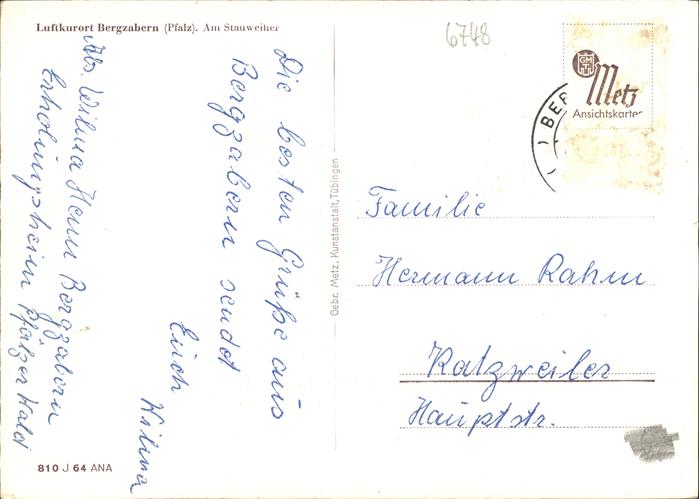 Luftkurort Bergzabern (Pfalz). Am Stauweiher
Die besten Grüße aus
Bergzabern sendet
Euch
Wilma
Abs. Wilma Henn Bergzabern
Erholungsheim Pfälzer Wald
810 J 64 ANA
Gebr. Metz, Kunstanstalt, Tübingen
6748
GM
Metz
Ansichtskarten
BER
Familie
Hermann Rahm
Katzweiler
Hauptstr.